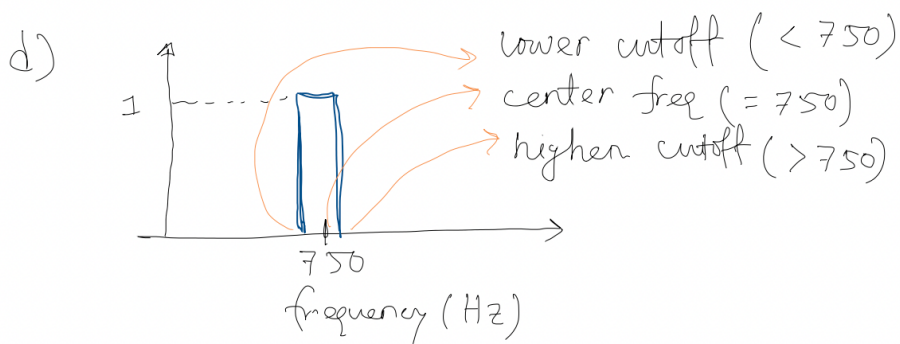 d)
lower cutoff (< 750)
1
center freq (= 750)
higher cutoff (> 750)
750
frequency (Hz)